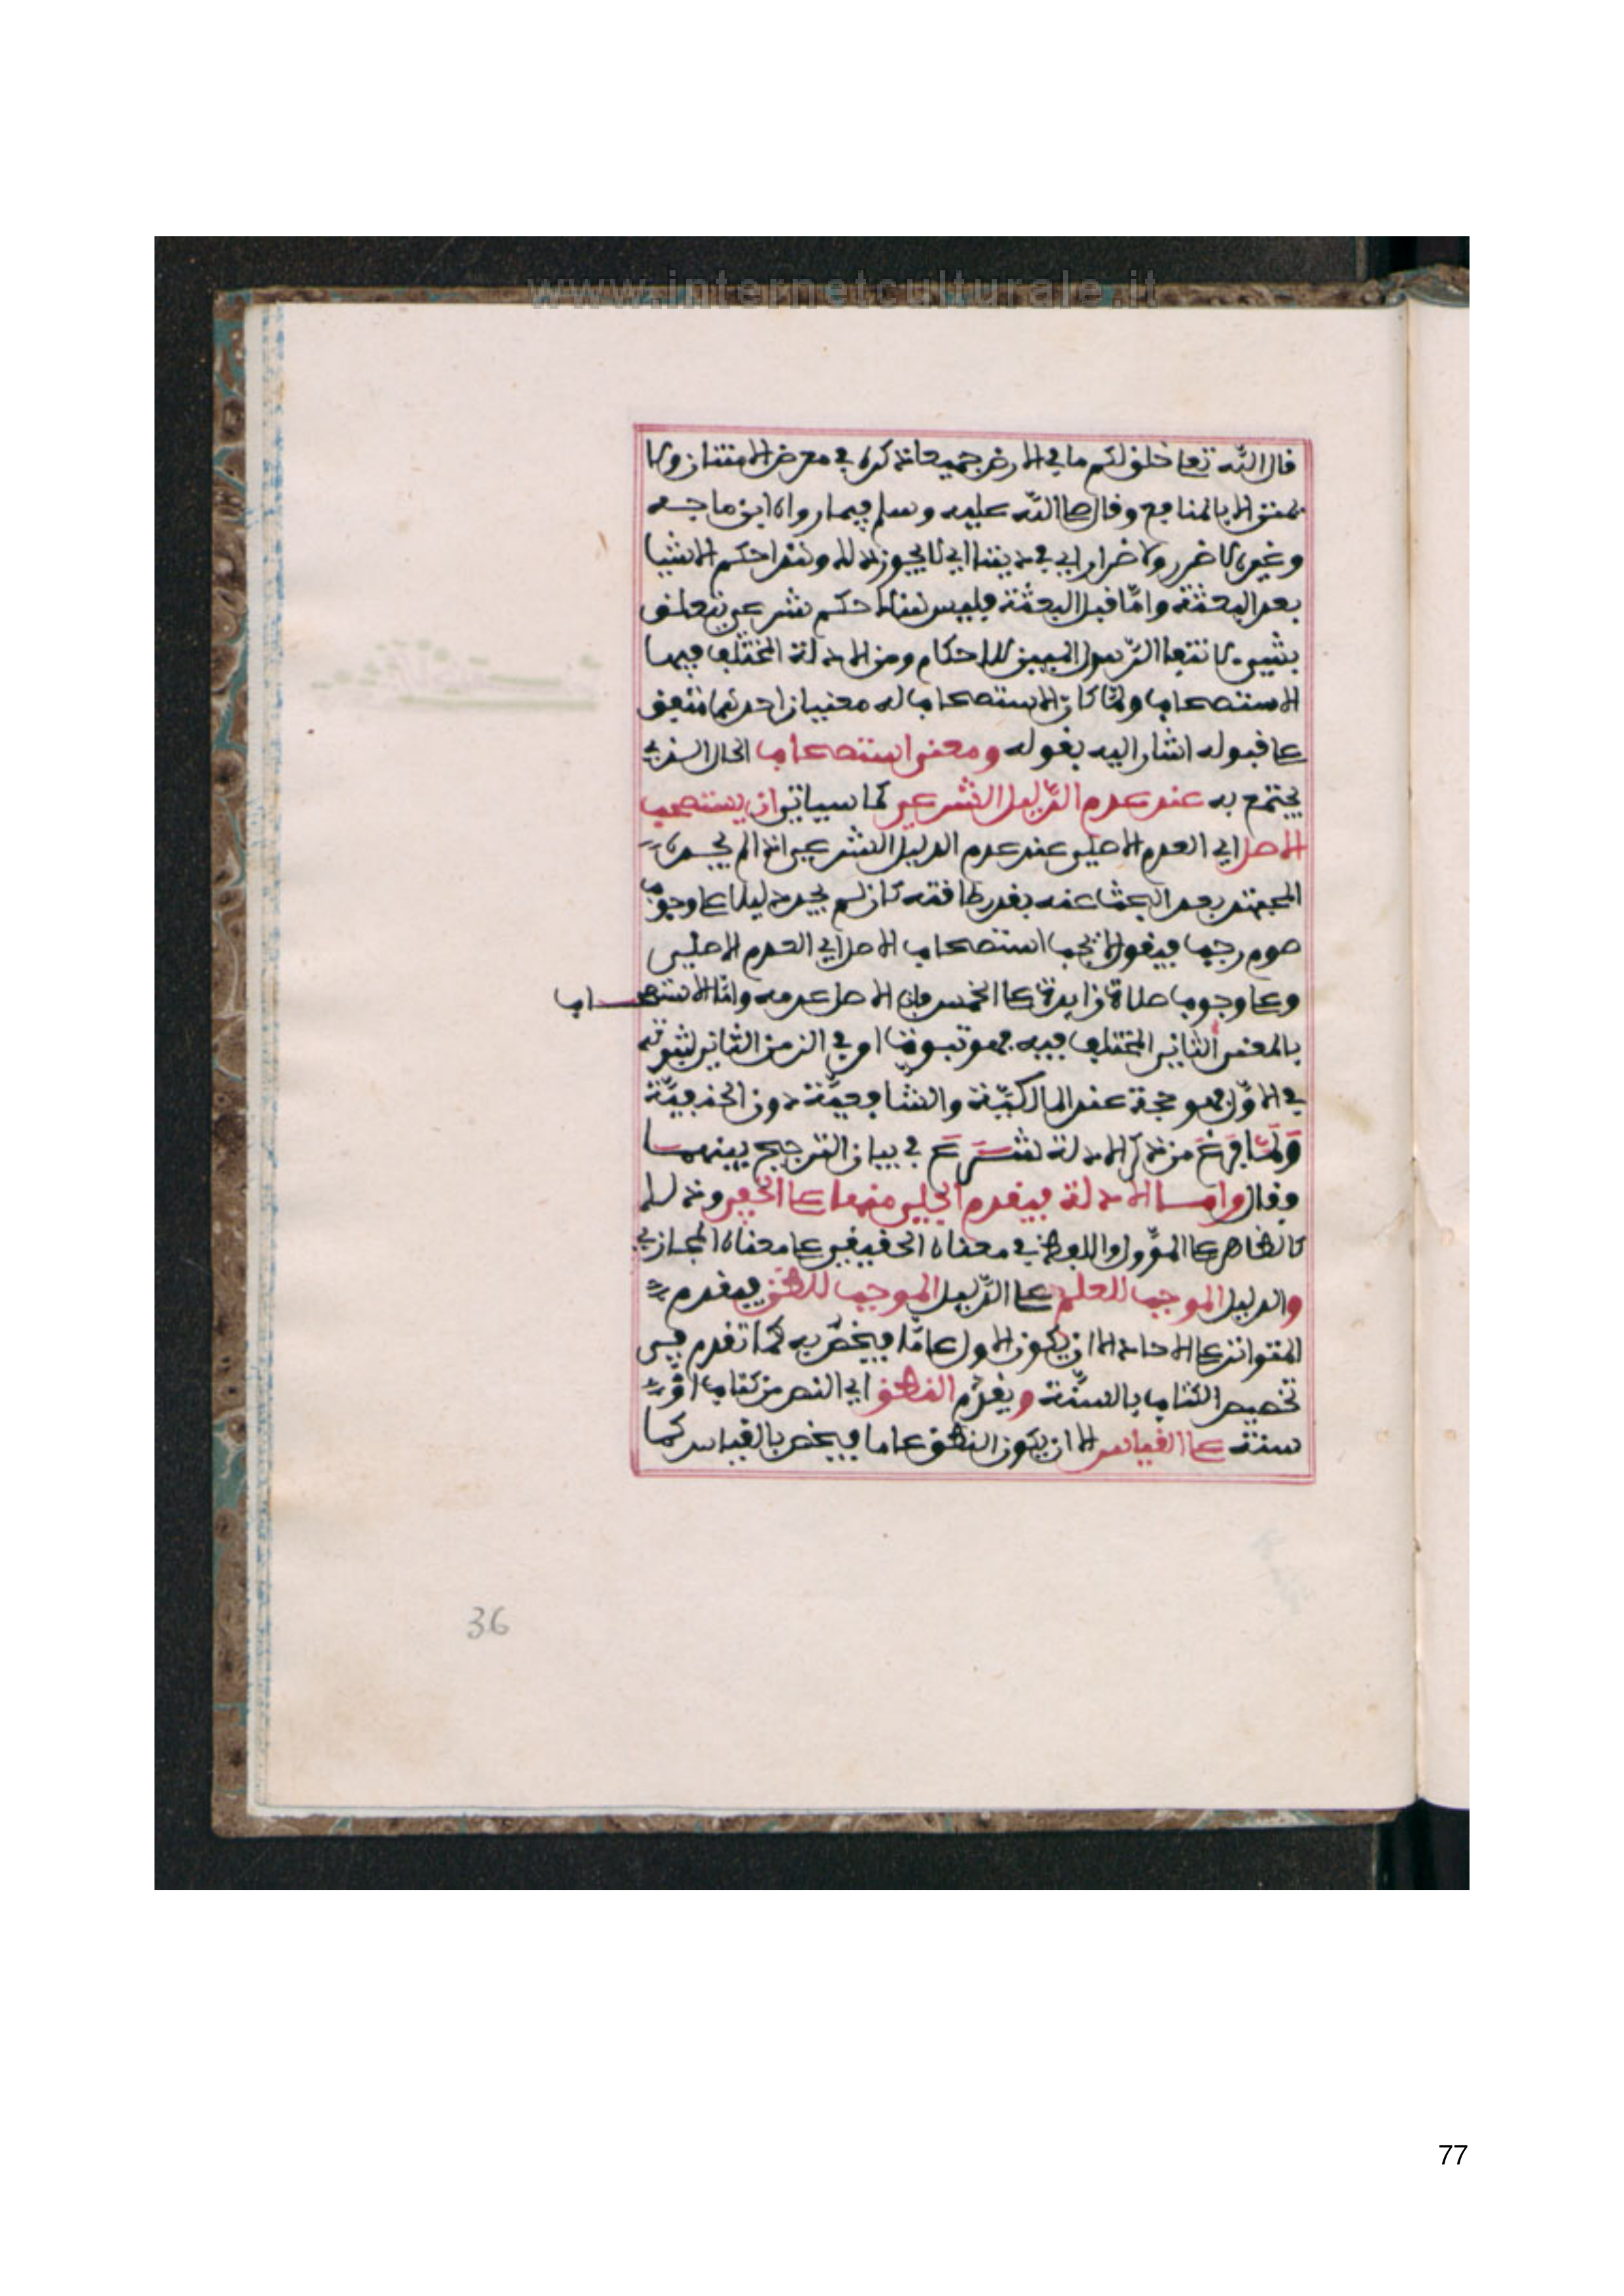 www.internetculturale.it
قال الله تعا خلق لكم ما في الارض جميعا ذكره في معرض الامتنان ولا
يمتن الا بالمنافع وقال صلى الله عليه وسلم فيما رواه ابن ماجه
وغيره لا ضرر ولا ضرار اي في ديننا اي لا يجوز ذلك وهذا حكم الاشيا
بعد البعثة وامّا قبل البعثة فليس هناك حكم شرعي يتعلق
بشيء لانتفا الرّسول المبين للاحكام ومن الادلة المختلف فيها
الاستصحاب ولمّا كان الاستصحاب له معنيان احدهما متفق
على قبوله اشار اليه بقوله ومعنى استصحاب الحال الذي
يحتج به عند عدم الدّليل الشرعي كما سياتي ان يستصحب
الاصل اي العدم الاصلي عند عدم الدليل الشرعي اذا لم يجده
المجتهد بعد البحث عنه بقدر طاقته كان لم يجد دليلا على وجوب
صوم رجب فيقول لا يجب استصحاب الاصل اي العدم الاصلي
وعلى وجوب صلاة زايدة على الخمس فان الاصل عدمه وامّا الاستصحاب
بالمعنى الثاني المختلف فيه فهو ثبوت امر في الزمن الثاني لثبوته
في الاوّل فهو حجة عند المالكيّة والشّافعيّة دون الحنفيّة
وَلَمَّا فَرَغَ من ذكر الادلة شَرَعَ في بيان الترجيح بينهما
وقال وامـا الادلة فيقدم الجلي منها على الخفي وذلك
كالظاهر على المؤّول واللفظ في معناه الحقيقي على معناه المجازي
والدليل الموجب للعلم على الدّليل الموجب للظن فيقدم
المتواتر على الاحاد الا ان يكون الاول عامّا فيخصّ به كما تقدم في
تخصيص الكتاب بالسنّة ويقدّم النطق اي النص من كتاب اوْ
سنة على القياس الا ان يكون النطق عاما فيخص بالقياس كما
36
77